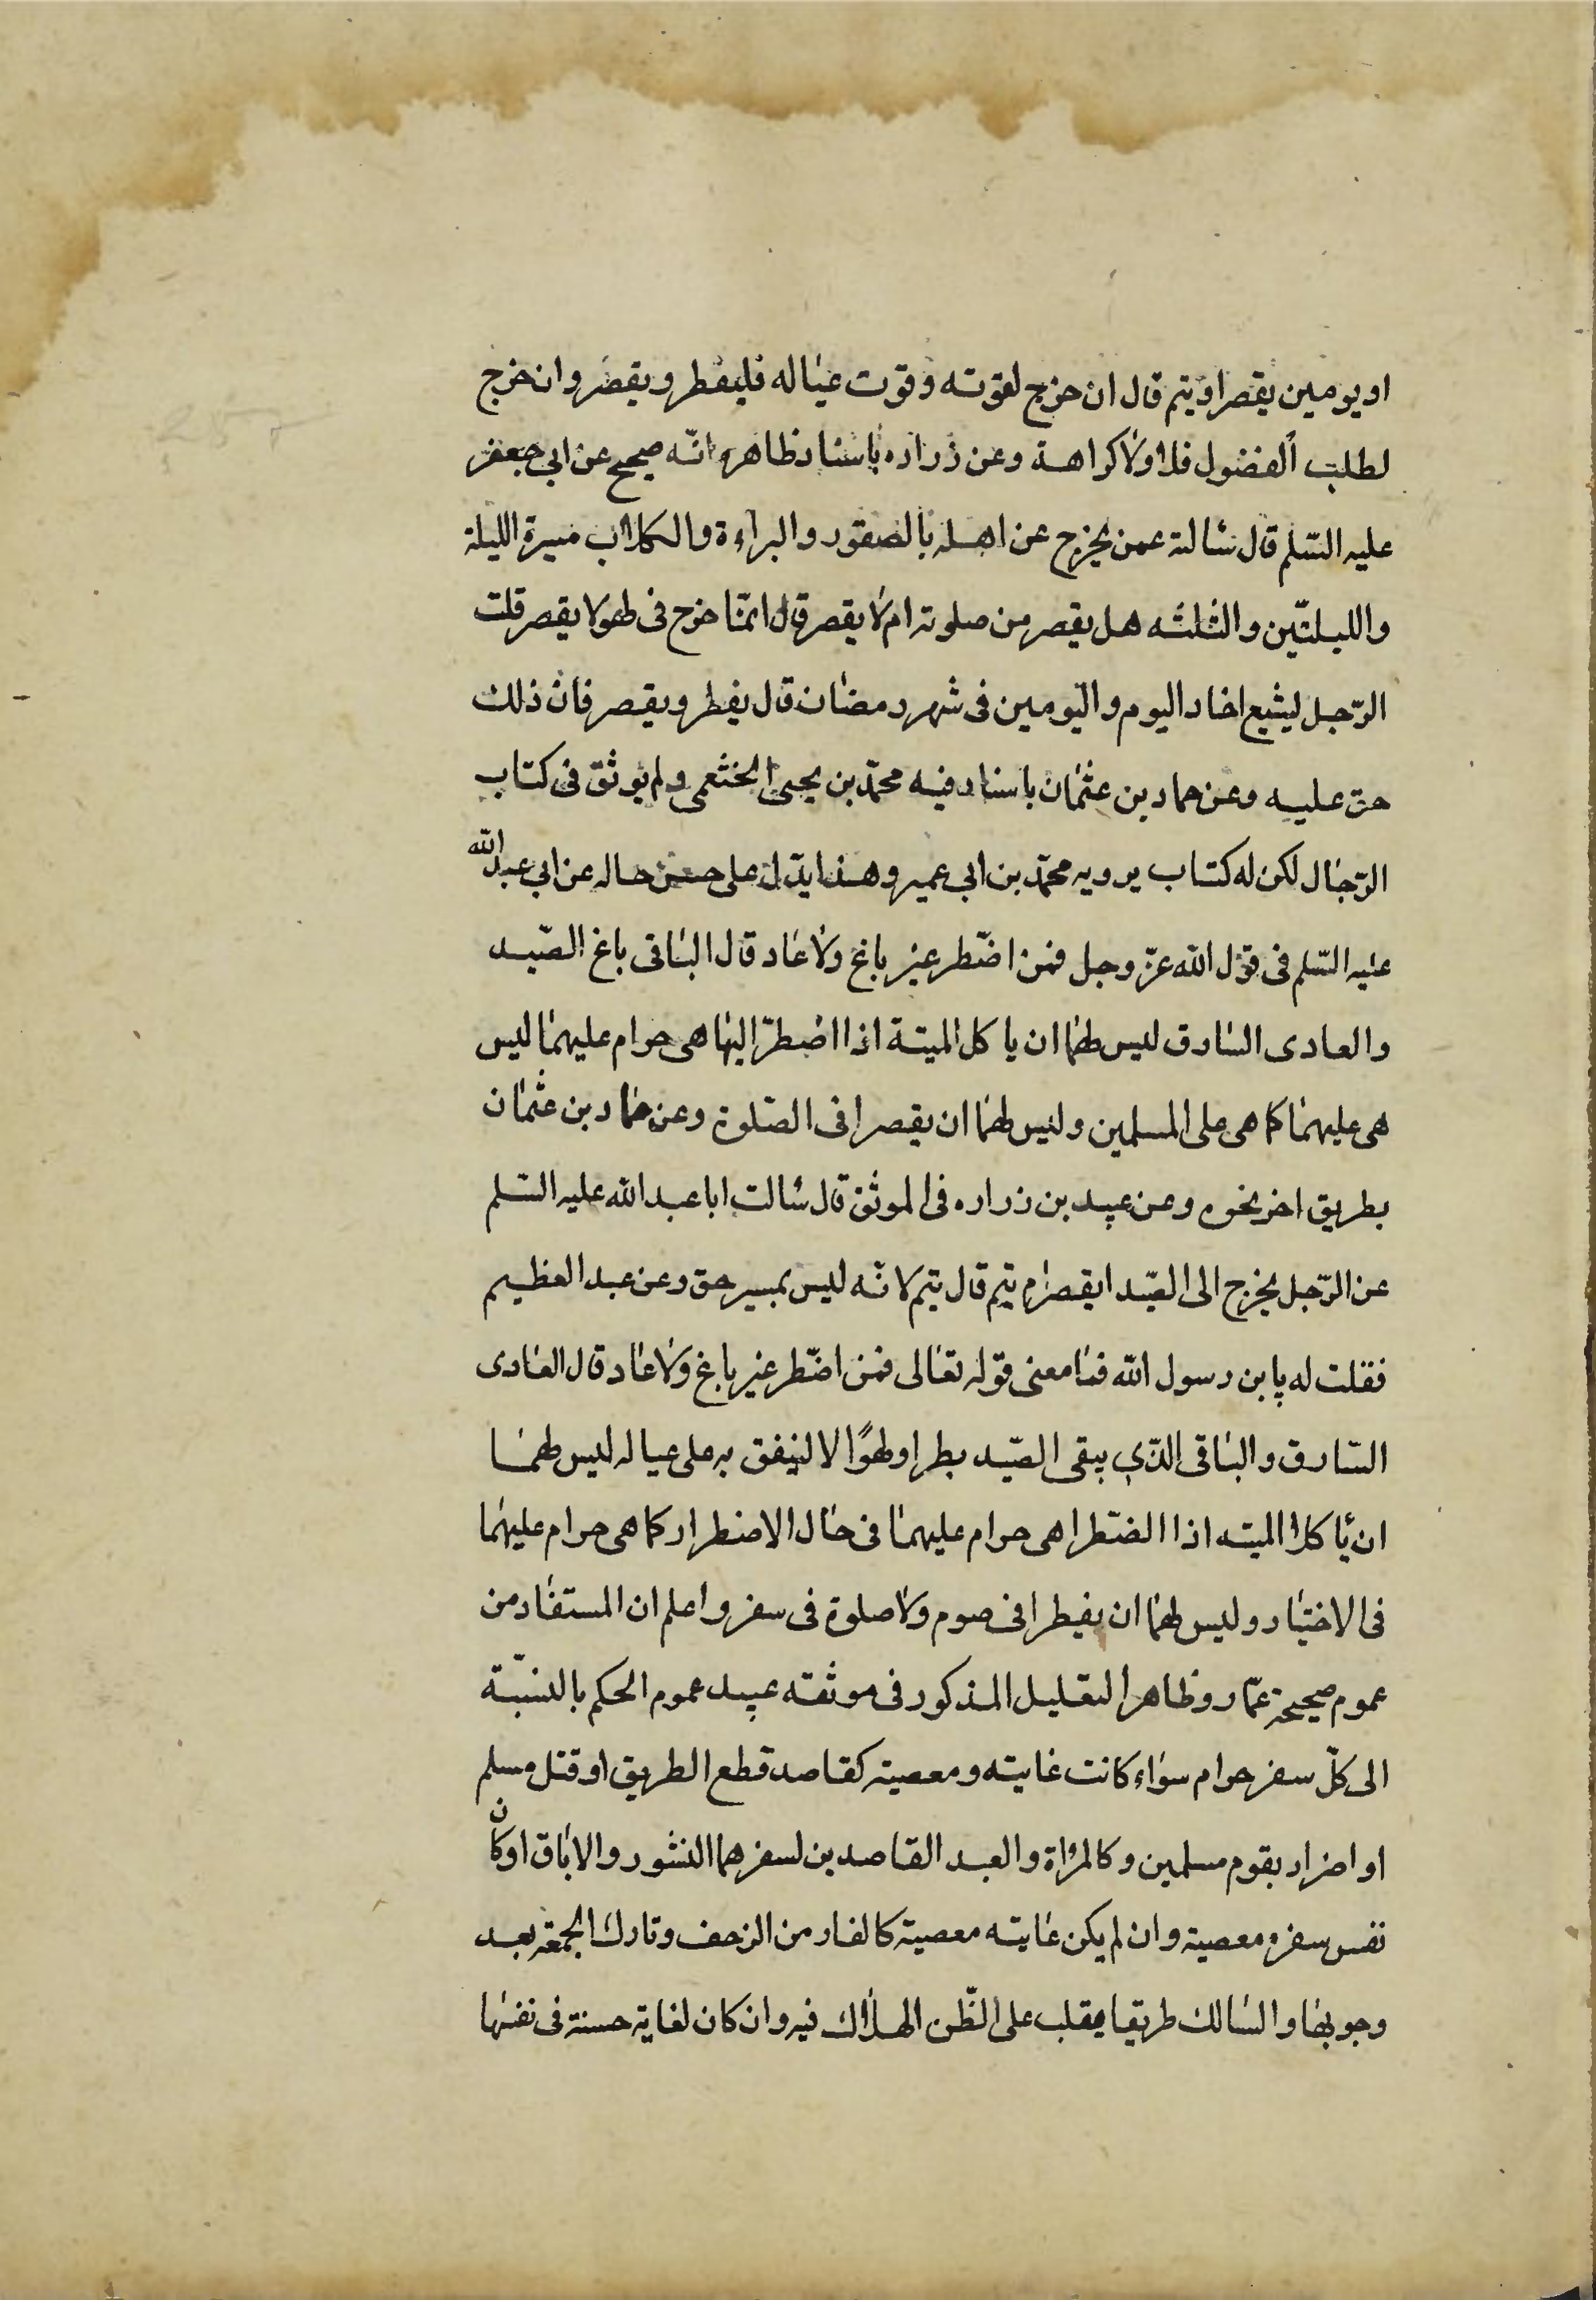 او يومين يقصر او يتم قال ان خرج لقوته وقوت عياله فليفطر ويقصر وان خرج
لطلب الفضول فلا ولا كراهة وعن زراره باسناد ظاهره انّه صحيح عن ابي جعفر
عليه السّلم قال سالته عمن يخرج عن اهله بالصقور والبراءة والكلاب مسيرة الليلة
والليلتين والثلثه هل يقصر من صلوته ام لا يقصر قال انمّا خرج فى لهو لا يقصر قلت
الرّجل ليشيع اخاه اليوم واليومين فى شهر رمضان قال يفطر ويقصر فان ذلك
حق عليه وعن حماد بن عثمان باسناد فيه محمّد بن يحيى الخثعمى ولم يوثق فى كتاب
الرّجال لكن له كتاب يرويه محمّد بن ابي عمير وهذا يدّل على حسن حاله عن ابي عبد الله
عليه السّلم فى قول الله عزّ وجل فمن اضّطر غير باغ ولا عاد قال الباقى باغ الصّيد
والعادى السّارق ليس لهما ان ياكل الميتة اذا اضطرّ اليها هى حرام عليهما ليس
هى عليهما كما هى على المسلمين وليس لهما ان يقصرا فى الصّلوة وعن حماد بن عثمان
بطريق اخر نحوه وعن عبيد بن زراره فى الموثق قال سالت ابا عبد الله عليه السّلم
عن الرّجل يخرج الى الصّيد ايقصر ام يتم قال يتم لانّه ليس بمسير حق وعن عبد العظيم
فقلت له يابن رسول الله فما معنى قوله تعالى فمن اضّطر غير باغ ولا عاد قال العادى
السّارق والباقى الذّي يبقى الصّيد بطرا ولهوًا لا لينفق به على عياله ليس لهما
ان ياكلا الميته اذا الضتطرا هى حرام عليهما فى حال الاضطرار كما هى حرام عليهما
فى الاختيار وليس لهما ان يفيطرا فى صوم ولا صلوة فى سفر واعلم ان المستفاد من
عموم صحيحة عمّار وظاهر التعليل المذكور فى موثقه عبيد عموم الحكم بالنسبّة
الى كلّ سفر حرام سواء كانت غايته ومعصيته كقاصد قطع الطريق او قتل مسلم
او اضرار بقوم مسلمين وكالمراة والعبد القاصدين لسفرهما النشور والاباق او كان
نفس سفره معصية وان لم يكن غايته معصية كالفار من الزحف وتارك الجمعة بعد
وجوبها والسالك طريقا يقلب على الظّن الهلاك فيه وان كان لغاية حسنة فى نفسها